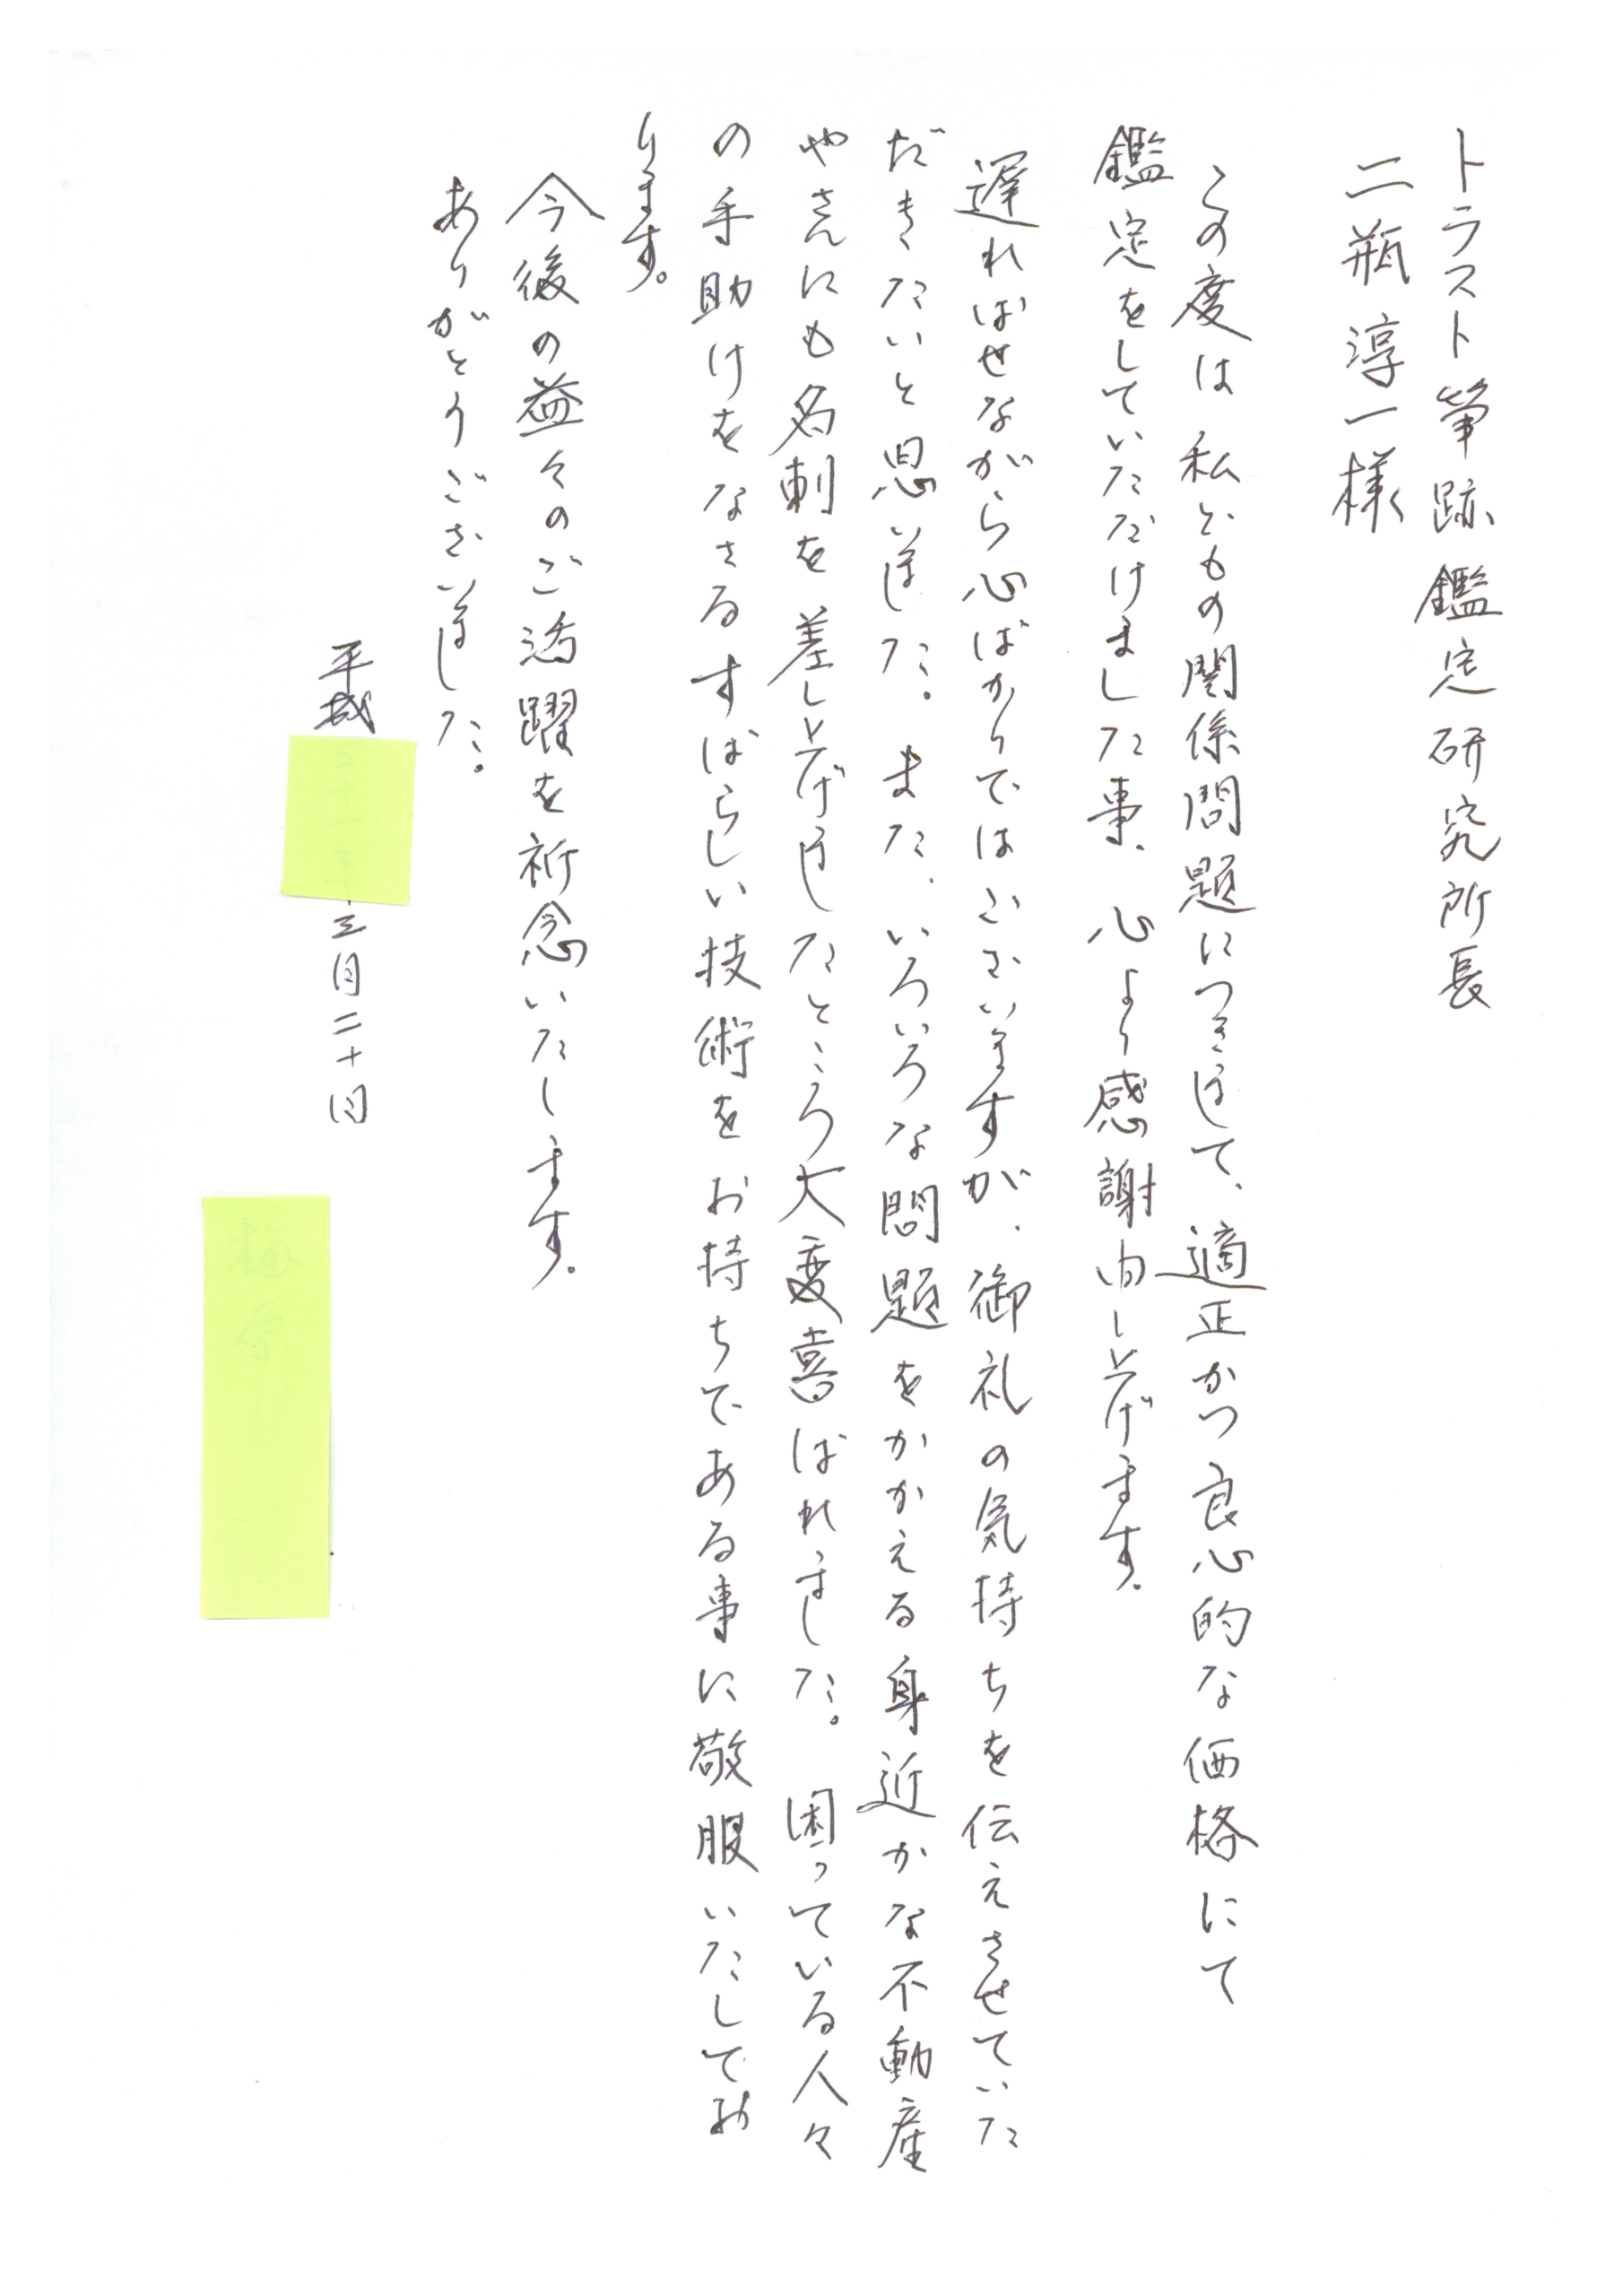 トラスト筆跡鑑定研究所長
二瓶淳一様
この度は私どもの関係問題につきまして、適正かつ良心的な価格にて
鑑定をしていただけました事、心より感謝申し上げます。
遅ればせながら心ばかりではございますが、御礼の気持ちを伝えさせていた
だきたいと思いました。また、いろいろな問題をかかえる身近かな不動産
やさんにも名刺を差し上げましたところ大変喜ばれました。困っている人々
の手助けをなさるすばらしい技術をお持ちである事に敬服いたしてお
ります。
今後の益々のご活躍を祈念いたします。
ありがとうございました。
平成
三月二十日